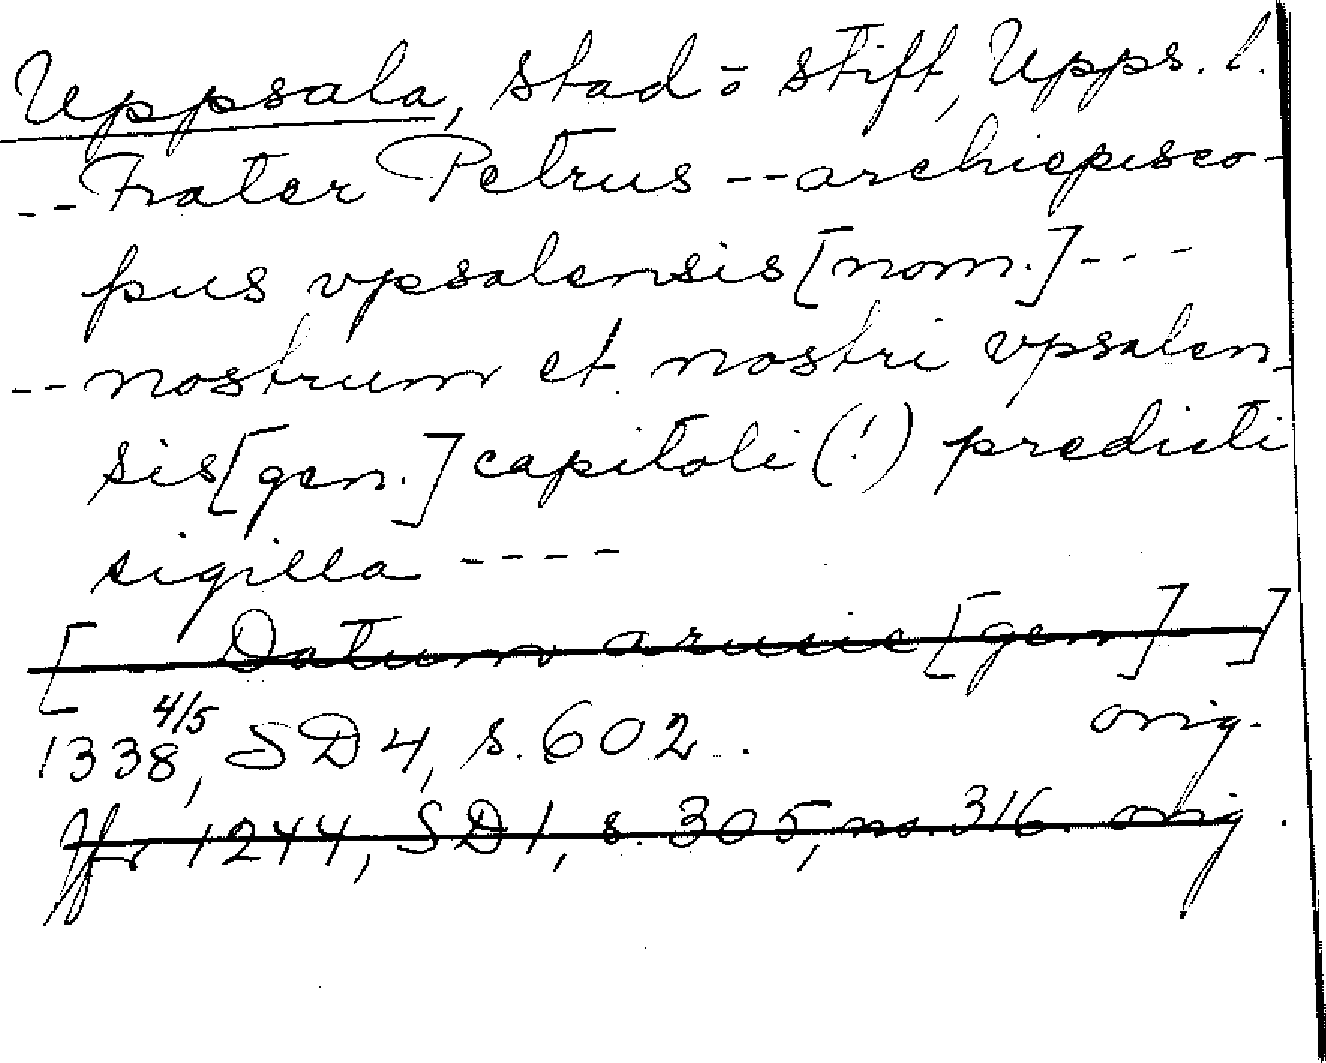 Uppsala, stad o stift, Upps. l.
-- Frater Petrus -- archiepisco-
pus vpsalensis [nom.] ---
-- nostrum et nostri vpsalen-
sis [gen.] capitoli (!) predicti
sigilla ----
[ - Datum arusie [gen] ]
1338 4/5, SD 4, s. 602. orig.
Jfr 1244, SD 1, s. 305, no. 316. orig.